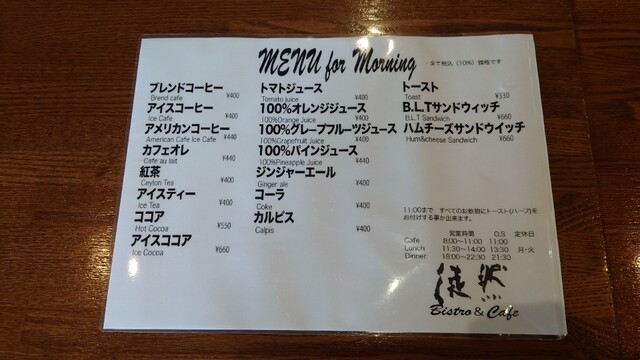 MENU for Morning
・全て税込（10％）価格です
ブレンドコーヒー
Brend cafe ¥400
アイスコーヒー
Ice Cafe ¥400
アメリカンコーヒー
American Cafe Ice Cafe ¥440
カフェオレ
Cafe au lait ¥440
紅茶
Ceylon Tea ¥400
アイスティー
Ice Tea ¥400
ココア
Hot Cocoa ¥550
アイスココア
Ice Cocoa ¥660
トマトジュース
Tomato juice ¥400
100%オレンジジュース
100%Orange Juice ¥400
100%グレープフルーツジュース
100%Grapefruit Juice ¥400
100%パインジュース
100%Pineapple Juice ¥440
ジンジャーエール
Ginger ale ¥400
コーラ
Coke ¥400
カルピス
Calpis ¥400
トースト
Toast ¥330
B.L.Tサンドウィッチ
B.L.T Sandwich ¥660
ハムチーズサンドウイッチ
Hum&cheese Sandwich ¥660
11:00まで すべてのお飲物にトースト(ハーフ)を
お付けする事が出来ます。
営業時間 O.S 定休日
Cafe 8:00〜11:00 11:00
Lunch 11:30〜14:00 13:30 月・火
Dinner 18:00〜22:30 21:30
徒然
Bistro & Cafe